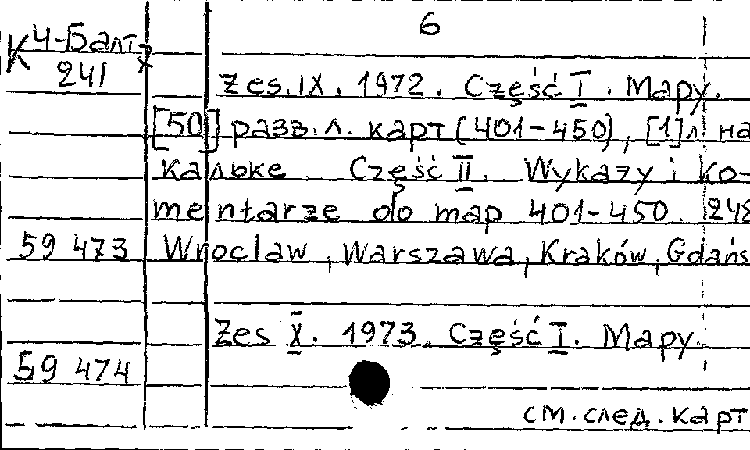 6
К 4-Балт
241
Zes. IX. 1972. Część I. Mapy.
[50] разв. л. карт (401-450), [1] л. на
кальке Część II. Wykazy i ko-
mentarze do map 401-450. 248
59 473 Wroclaw, Warszawa, Kraków, Gdańs
Zes X. 1973. Część I. Mapy.
59 474
см. след. карт